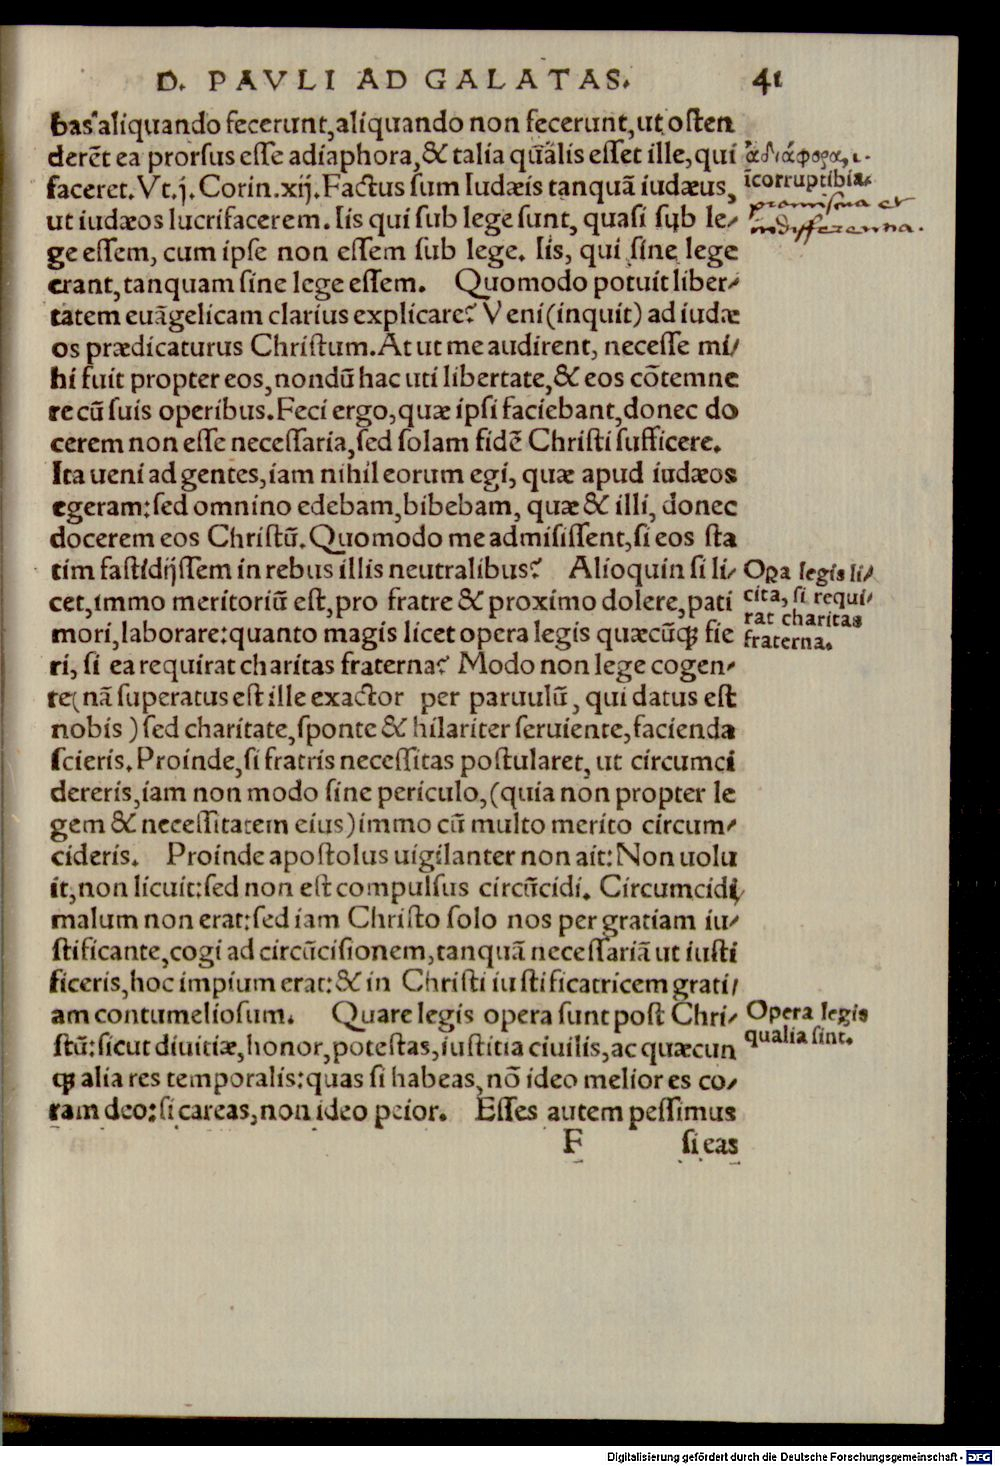 D. PAVLI AD GALATAS. 41
bas aliquando fecerunt, aliquando non fecerunt, ut osten
derēt ea prorsus esse adiaphora, & talia qualis esset ille, qui
faceret. Vt. j. Corin. xij. Factus sum Iudæis tanquā iudæus,
ut iudæos lucrifacerem. Iis qui sub lege sunt, quasi sub le-
ge essem, cum ipse non essem sub lege. Iis, qui sine lege
erant, tanquam sine lege essem. Quomodo potuit liber-
tatem euāgelicam clarius explicare? Veni (inquit) ad iudæ
os prædicaturus Christum. At ut me audirent, necesse mi-
hi fuit propter eos, nondū hac uti libertate, & eos cōtemne
re cū suis operibus. Feci ergo, quæ ipsi faciebant, donec do
cerem non esse necessaria, sed solam fidē Christi sufficere.
Ita ueni ad gentes, iam nihil eorum egi, quæ apud iudæos
egeram: sed omnino edebam, bibebam, quæ & illi, donec
docerem eos Christū. Quomodo me admisissent, si eos sta
tim fastidijssem in rebus illis neutralibus? Alioquin si li-
cet, immo meritoriū est, pro fratre & proximo dolere, pati
mori, laborare: quanto magis licet opera legis quæcūq; fie
ri, si ea requirat charitas fraterna? Modo non lege cogen-
te (nā superatus est ille exactor per paruulū, qui datus est
nobis) sed charitate, sponte & hilariter seruiente, facienda
scieris. Proinde, si fratris necessitas postularet, ut circumci
dereris, iam non modo sine periculo, (quia non propter le
gem & necessitatem eius) immo cū multo merito circum-
cideris. Proinde apostolus uigilanter non ait: Non uolu
it, non licuit: sed non est compulsus circūcidi. Circumcidi
malum non erat: sed iam Christo solo nos per gratiam iu-
stificante, cogi ad circūcisionem, tanquā necessariā ut iusti
ficeris, hoc impium erat: & in Christi iustificatricem grati-
am contumeliosum. Quare legis opera sunt post Chri-
stū: sicut diuitiæ, honor, potestas, iustitia ciuilis, ac quæcun
q; alia res temporalis: quas si habeas, nō ideo melior es co-
ram deo: si careas, non ideo peior. Esses autem pessimus
F si eas
ἀδιάφορα, i.
īcorruptibia.
et
indifferentia.
Opa legis li-
cita, si requi-
rat charitas
fraterna.
Opera legis
qualia sint.
Digitalisierung gefördert durch die Deutsche Forschungsgemeinschaft - DFG